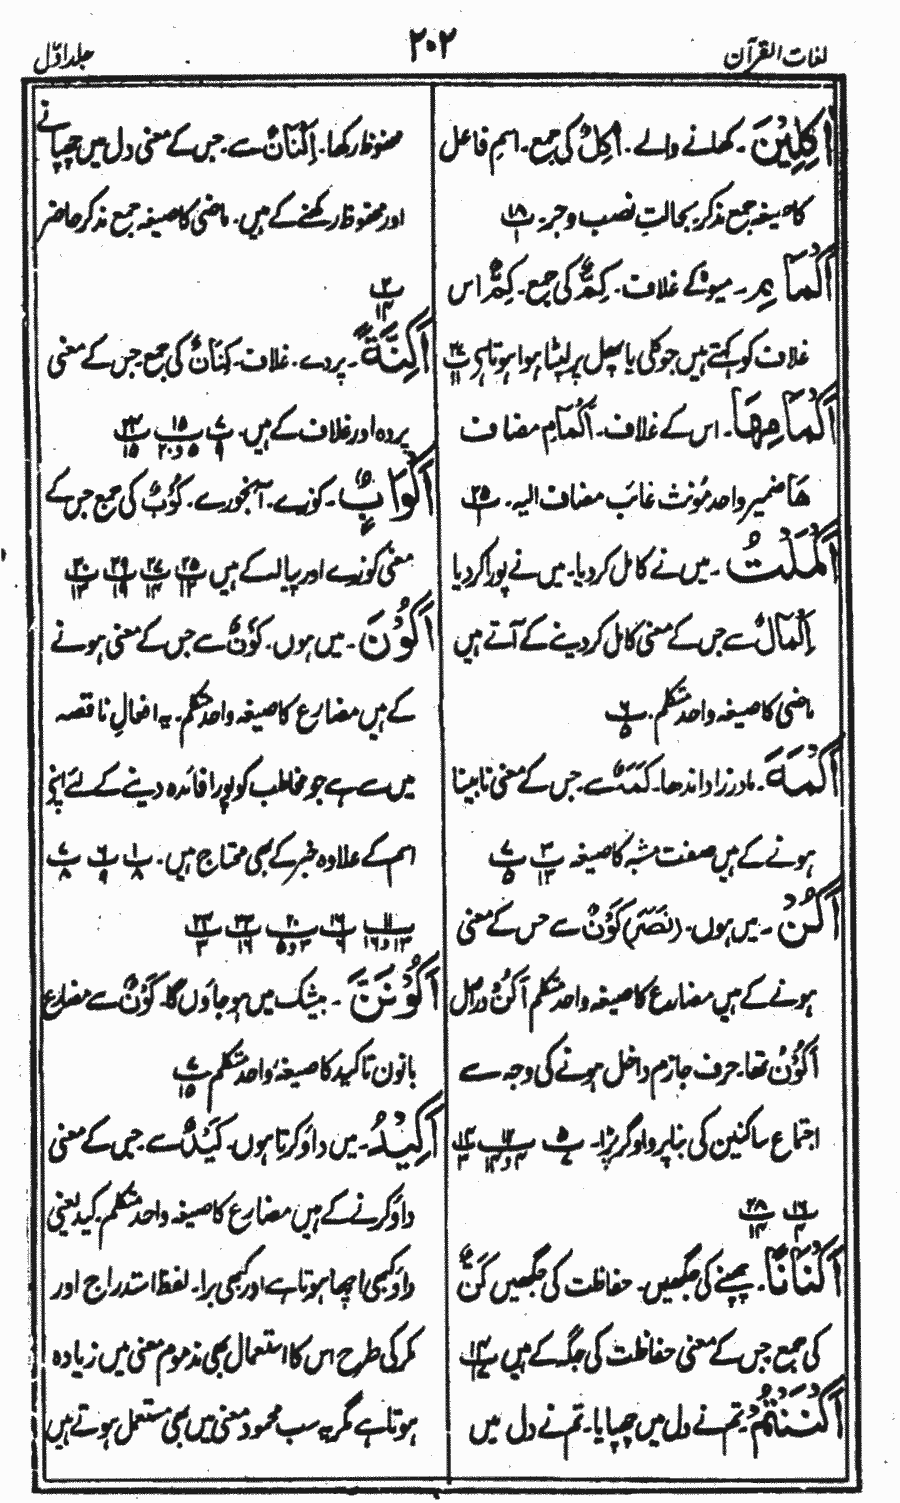 لغات القرآن
۲۰۲
جلد اوّل
اٰكِلِيْنَ۔ کھانے والے۔ اٰکِلٌ کی جمع۔ اسم فاعل
کا صیغہ جمع مذکر۔ بحالتِ نصب و جر۔ پ۱۸
اَكْمَامِ۔ میوہ کے غلاف۔ کِمٌّ کی جمع۔ کِمٌّ اس
غلاف کو کہتے ہیں جو کلی یا پھل پر لپٹا ہوا ہوتا ہے
اَكْمَامِهَا۔ اس کے غلاف۔ اَکْمَامِ مضاف
هَا ضمیر واحد مؤنث غائب مضاف الیہ۔ پ۲۵
اَكْمَلْتُ۔ میں نے کامل کر دیا۔ میں نے پورا کر دیا
اِکْمَالٌ سے جس کے معنی کامل کر دینے کے آتے ہیں
ماضی کا صیغہ واحد متکلم۔ پ۶ ۵
اَكْمَهَ۔ مادر زاد اندھا۔ کَمَهٌ سے جس کے معنی نابینا
ہونے کے ہیں صفت مشبہ کا صیغہ پ۳ ۱۳ پ۷ ۵
اَكُنْ۔ میں ہوں۔ (نَصَرَ) کَوْنٌ سے جس کے معنی
ہونے کے ہیں مضارع کا صیغہ واحد متکلم اَکُنْ در اصل
اَکُوْنُ تھا۔ حرف جازم داخل ہونے کی وجہ سے
اجتماع ساکنین کی بنا پر واو گر پڑا۔
پ۱۶ ۴ پ۲۸ ۱۴
اَكْنَانًا۔ چھپنے کی جگھیں۔ حفاظت کی جگھیں کَنٌّ
کی جمع جس کے معنی حفاظت کی جگہ کے ہیں
اَكْنَنْتُمْ۔ تم نے دل میں چھپایا۔ تم نے دل میں
محفوظ رکھا۔ اِکْنَانٌ سے۔ جس کے معنی دل میں چھپانے
اور محفوظ رکھنے کے ہیں۔ ماضی کا صیغہ جمع مذکر حاضر
پ۲ ۱۴
اَكِنَّةً۔ پردے۔ غلاف۔ کِنَانٌ کی جمع۔ جس کے معنی
پردہ اور غلاف کے ہیں۔ پ۷ ۹ پ۱۵ ۵ و ۲۰ پ۲۳ ۱۵
اَكْوَابٍ۔ کوزے۔ آبخورے۔ کُوْبٌ کی جمع جس کے
معنی کوزے اور پیالے کے ہیں پ۲۵ ۱۳ پ۲۷ ۱۴ پ۲۹ ۱۹ پ۳۰ ۱۳
اَكُوْنَ۔ میں ہوں۔ کَوْنٌ سے جس کے معنی ہونے
کے ہیں مضارع کا صیغہ واحد متکلم۔ یہ افعالِ ناقصہ
میں سے ہے جو مخاطب کو پورا فائدہ دینے کے لئے اپنے
اسم کے علاوہ خبر کے بھی محتاج ہیں۔ پ۱ ۸ پ۶ ۹ پ۷ ۸
اَكُوْنَنَّ۔ بیشک میں ہو جاؤں گا۔ کَوْنٌ سے مضارع
بانون تاکید کا صیغۂ واحد متکلم پ۷ ۱۵
اَكِيْدُ۔ میں داؤ کرتا ہوں۔ کَیْدٌ سے۔ جس کے معنی
داؤ کرنے کے ہیں مضارع کا صیغہ واحد متکلم۔ کید یعنی
داؤ کبھی اچھا ہوتا ہے اور کبھی برا۔ لفظ استدراج اور
مکر کی طرح اس کا استعمال بھی مذموم معنی میں زیادہ
ہوتا ہے مگر یہ سب محمود معنی میں بھی مستعمل ہوتے ہیں